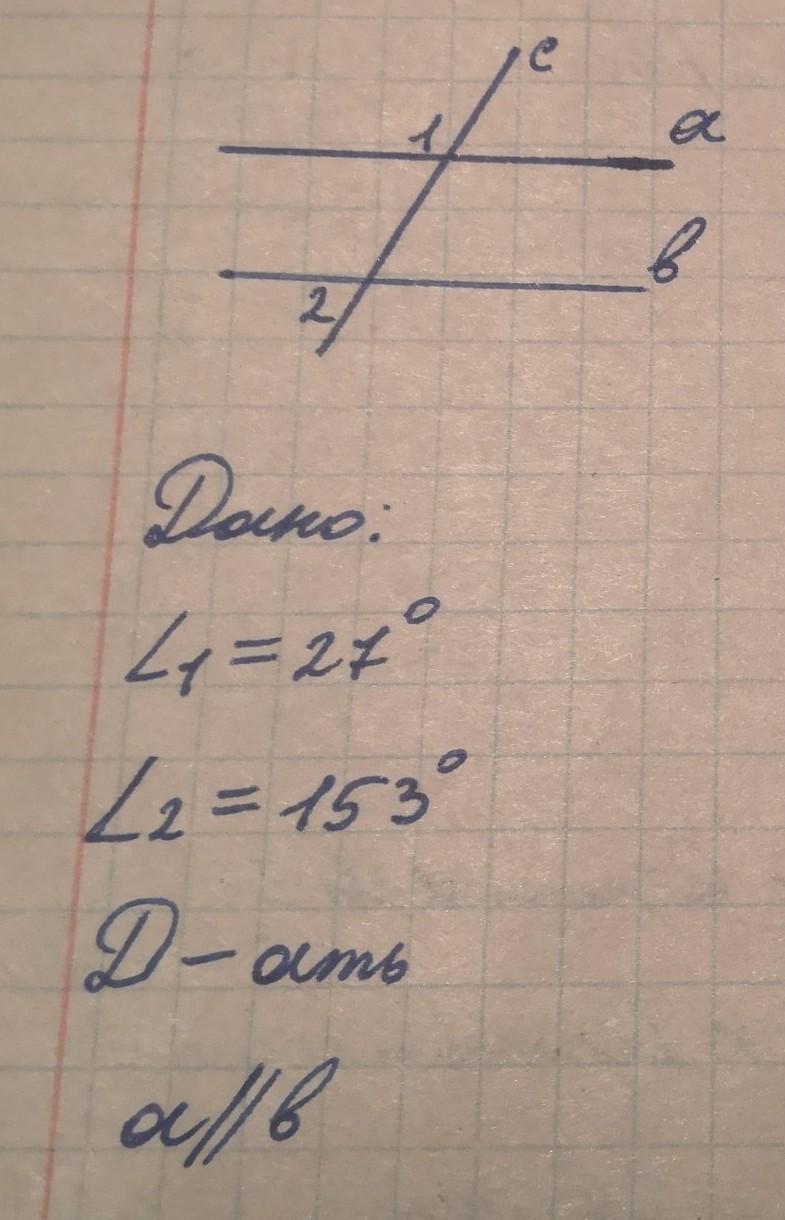 c
1
a
в
2
Дано:
∠1 = 27°
∠2 = 153°
Д-ать
a//в